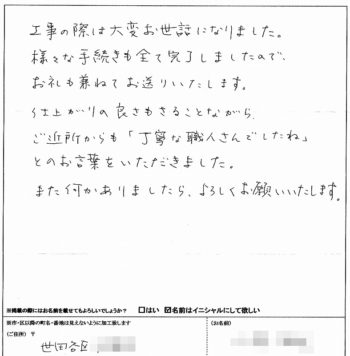 工事の際は大変お世話になりました。
様々な手続きも全て完了しましたので、
お礼も兼ねてお送りいたします。
仕上がりの良さもさることながら、
ご近所からも「丁寧な職人さんでしたね」
とのお言葉をいただきました。
また何かありましたら、よろしくお願いいたします。
※掲載の際にはお名前を載せてもよろしいでしょうか? □はい ☑名前はイニシャルにして欲しい
※市・区以降の町名・番地は見えないように加工致します
(ご住所) 〒
(お名前)
世田谷区